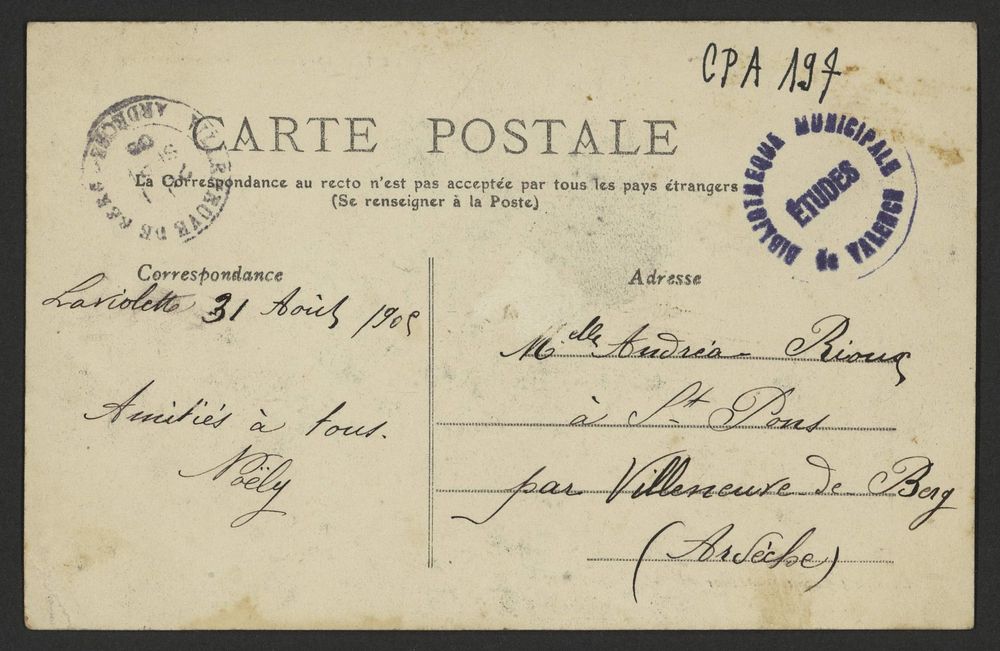 CPA 197
CARTE POSTALE
La Correspondance au recto n'est pas acceptée par tous les pays étrangers
(Se renseigner à la Poste)
BIBLIOTHEQUE MUNICIPALE de VALENCE
ÉTUDES
VILLENEUVE DE BERG ARDECHE
Correspondance
Laviolette 31 Août 1905
Amitiés à tous.
Noëly
Adresse
Mlle Andréa Rioux
à St Pons
par Villeneuve de Berg
(Ardèche)